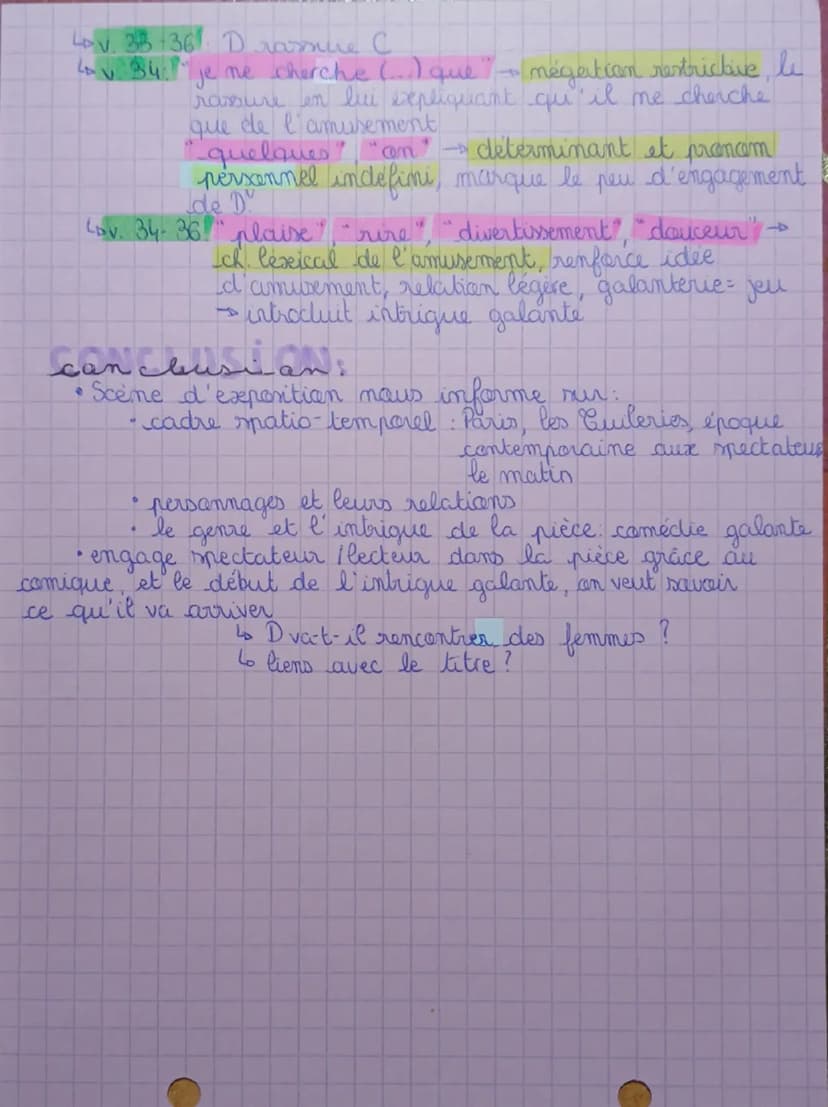 ↳ v. 33-36 D rassure C
↳ v 34: "je ne cherche (...) que" → négation restrictive, le
rassure en lui expliquant qu'il ne cherche
que de l'amusement
"quelques", "on" → déterminant et pronom
personnel indéfini, marque le peu d'engagement
de D
↳ v. 34-36: "plaise", "rire", "divertissement", "douceur" →
ch. léxical de l'amusement, renforce idée
d'amusement, relation légère, galanterie = jeu
→ introduit intrigue galante
CONCLUSION:
conclusion:
• Scène d'exposition nous informe sur:
• cadre spatio-temporel : Paris, les Tuileries, époque
contemporaine aux spectateurs
le matin
• personnages et leurs relations
• le genre et l'intrigue de la pièce: comédie galante
• engage spectateur/lecteur dans la pièce grâce au
comique, et le début de l'intrigue galante, on veut savoir
ce qu'il va arriver
↳ D va-t-il rencontrer des femmes ?
↳ liens avec le titre ?